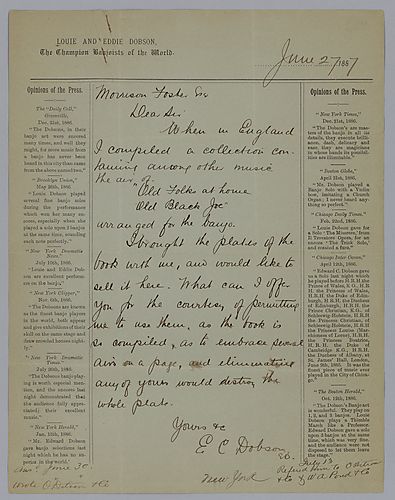 LOUIE AND EDDIE DOBSON,
The Champion Banjoists of the World.
June 27 1887
Opinions of the Press.
The "Daily Call,"
Greenville,
Dec. 21st, 1886.
"The Dobsons, in their
banjo act were encored
many times, and well they
might, for more music from
a banjo has never been
heard in this city than from
the above named two."
"Brooklyn Union,"
May 26th, 1886.
"Louie Dobson played
several fine banjo solos
during the performance
which won her many en-
cores, especially when she
played a solo upon 3 banjos
at the same time, sounding
each note perfectly."
"New York Dramatic
News,"
July 10th, 1886.
"Louie and Eddie Dob-
son are excellent perform-
ers on the banjo."
"New York Clipper,"
Nov. 6th, 1886.
"The Dobsons are known
as the finest banjo players
in the world, both appear
and give exhibitions of their
skill on the same stage and
draw crowded houses night-
ly."
"New York Dramatic
Times"
July 30th, 1886.
"The Dobson's banjo play-
ing is worth especial men-
tion, and the success last
night demonstrated that
the audience fully appre-
ciated; their excellent
music."
"New York Herald"
Jan. 12th, 1886.
"Mr. Edward Dobson
gave banjo selections last
night which he has no su-
perior in the world."
Morrison Foster Esr
Dear Sir
When in England
I compiled a collection con-
taining among other music
the airs of
Old Folks at home
Old Black Joe
arranged for the banjo.
I brought the plates of the
book with me, and would like to
sell it here. What can I offer
you for the courtesy of permitting
me to use them, as the book is
so compiled, as to embrace several
airs on a page, and eliminating
any of yours would destroy the
whole plate.
Yours &c
E C Dobson
New York
Opinions of the Press.
"New York Times,"
Dec. 21st, 1886.
"The Dobson's are mas-
ters of the banjo in all its
details, they execute brilli-
ance, dash, delicacy and
ease, they are magicians
in whose hands its possibili-
ties are illimitable."
"Boston Globe,"
April 21st, 1886.
"Mr. Dobson played a
Banjo Solo with a Violin
bow, imitating a Church
Organ; I never heard any-
thing so perfect."
"Chicago Daily Times."
Feb. 22nd, 1886.
"Louie Dobson gave for
a Solo 'The Miserere,' from
Il Trovatore Opera, for an
encore 'The Trink Solo,'
and created a fuse."
"Chicago Inter Ocean."
April 12th, 1886.
"Edward C. Dobson gave
us a Solo last night which
he played before H.R.H. the
Prince of Wales, K.G., H.R.
H. the Princess of Wales,
H.R.H. the Duke of Edin-
burgh, H.R.H. the Duchess
of Edinburgh, H.R.H. the
Prince Christian, K.G., of
Schleswig-Holstein, H.R.H.
the Princess Christian of
Schleswig-Holstein, H.R.H.
the Princess Louise (Mar-
chioness of Lorne), H.R.H.
the Princess Beatrice,
H.R.H. the Duke of
Cambridge K.G., H.R.H.
the Duchess of Albany, at
St. James' Hall, London,
June 9th, 1886. It was the
finest piece of music ever
played in the City of Chica-
go."
"The Boston Herald,"
Oct. 12th, 1886.
"The Dobson's Banjo Act
is wonderful. They play on
1, 2, and 3 banjos. Louie
Dobson plays a Thimble
March like a Professor.
Edward Dobson gave a solo
upon 3 banjos at the same
time, which was very fine,
and the audience were not
disposed to let them leave
the stage."
Ans'd June 30.
Wrote O Ditson & Co
July 13
Refered him to O Ditson
& Co & W A Pond & Co